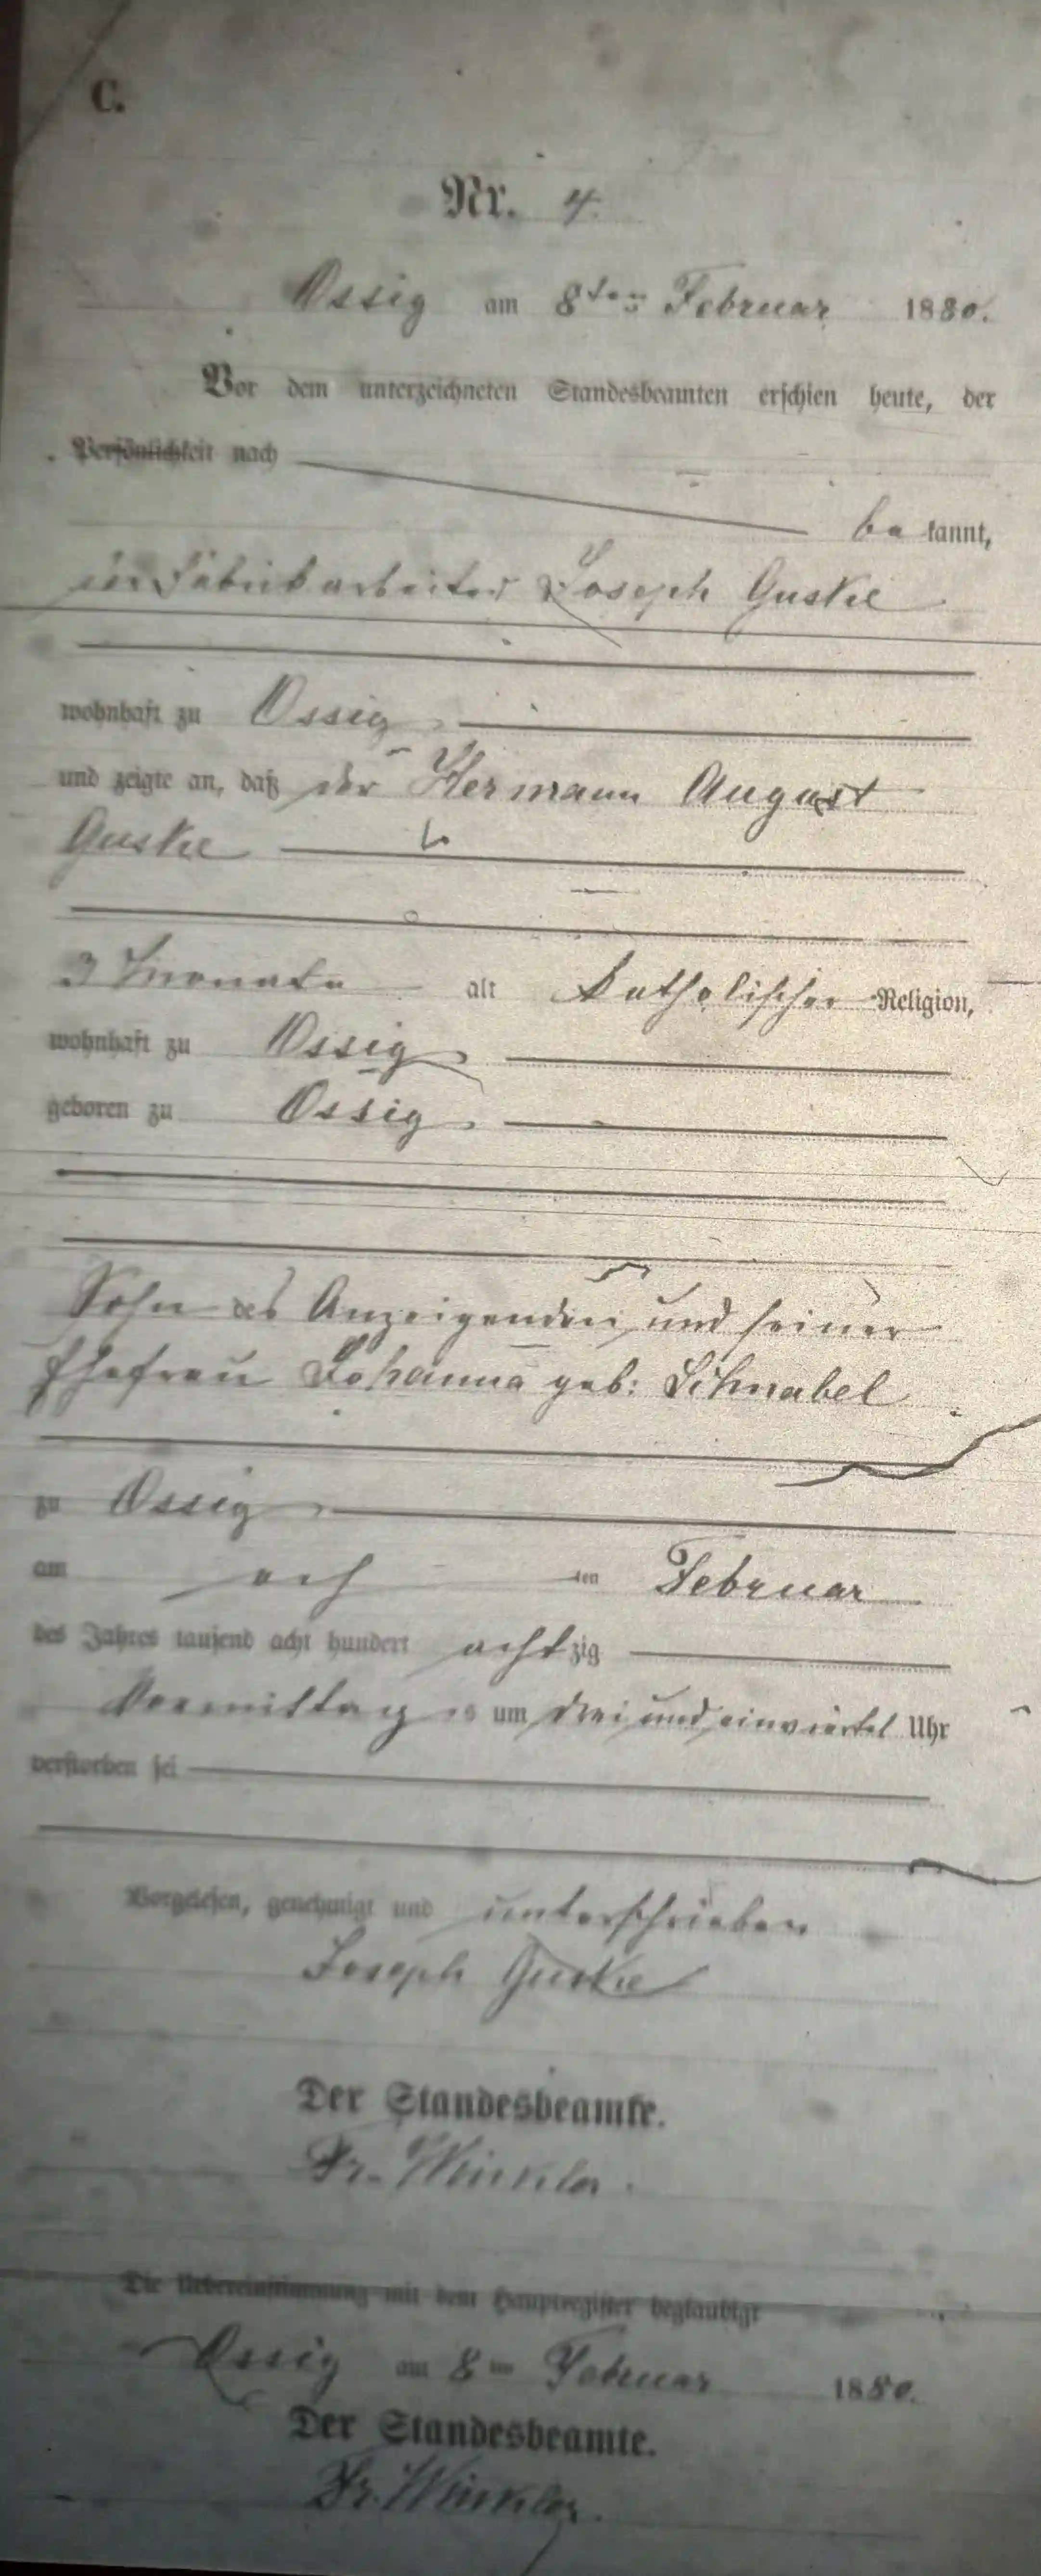 C.
Nr. 4.
Ossig am 8ten Februar 1880.
Vor dem unterzeichneten Standesbeamten erschien heute, der
Persönlichkeit nach
be kannt,
der Fabrikarbeiter Joseph Guske
wohnhaft zu Ossig
und zeigte an, daß der Hermann August
Guske
3 Monate alt katholischer Religion,
wohnhaft zu Ossig
geboren zu Ossig
Sohn des Anzeigenden und seiner
Ehefrau Johanna geb: Schnabel
zu Ossig
am ach ten Februar
des Jahres tausend acht hundert achtzig
Vormittag s um drei und einviertel Uhr
verstorben sei
Vorgelesen, genehmigt und unterschrieben
Joseph Guske
Der Standesbeamte.
Fr. Winkler.
Die Uebereinstimmung mit dem Hauptregister beglaubigt
Ossig am 8ten Februar 1880.
Der Standesbeamte.
Fr. Winkler.